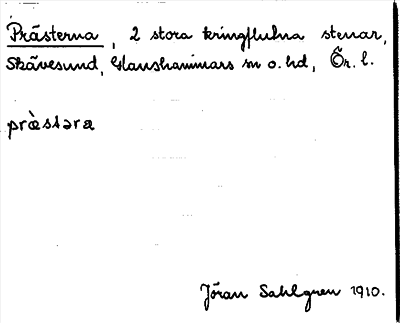 Prästerna, 2 stora kringflutna stenar,
Skävesund, Glanshammars sn o. hd, Ör. l.
prὲstəra
Jöran Sahlgren 1910.